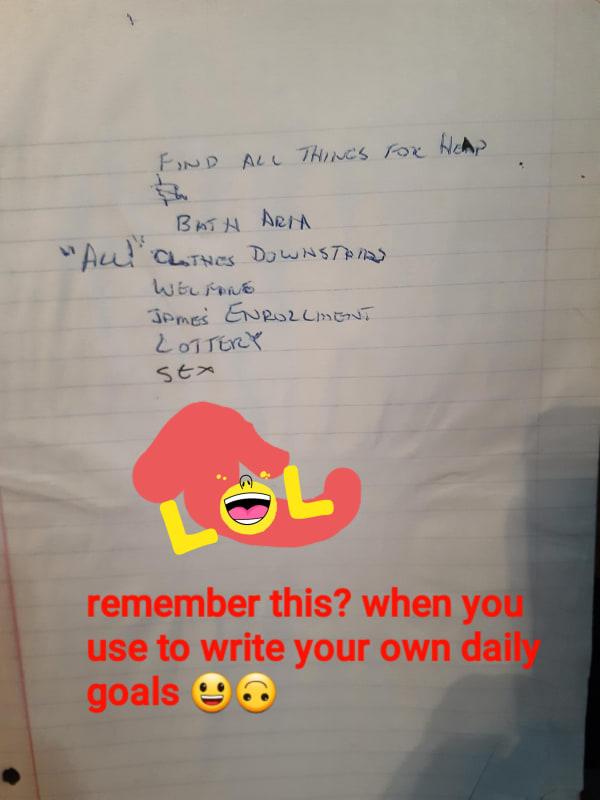 FIND ALL THINGS FOR HEAP
BATH ARM
"ALL!" CLOTHES DOWNSTAIRS
WELFARE
JAMES' ENROLLMENT
LOTTERY
SEX
LOL
remember this? when you
use to write your own daily
goals 😀🙃